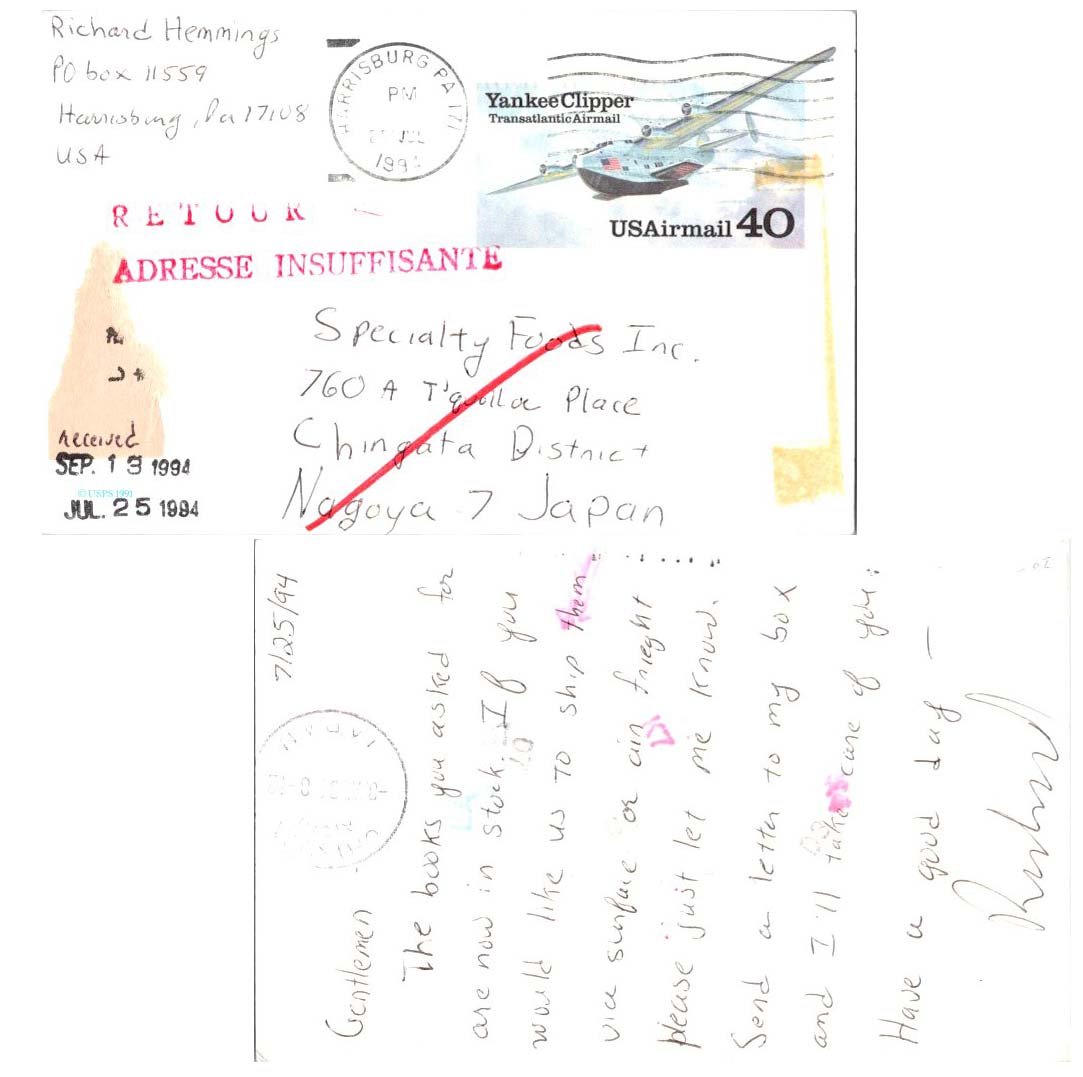 Richard Hemmings
PO box 11559
Harrisburg, Pa 17108
USA
HARRISBURG PA 171
PM
JUL
199
Yankee Clipper
Transatlantic Airmail
USAirmail 40
RETOUR
ADRESSE INSUFFISANTE
Specialty Foods Inc.
760 A Place
Chingata District
Nagoya 7 Japan
received
SEP. 13 1994
© USPS 1991
JUL. 25 1994
7/25/94
Gentlemen
The books you asked for
are now in stock. If you
would like us to ship them
via surface or air frieght
please just let me know.
Send a letter to my box
and I'll take care of you.
Have a good day —
JAPAN